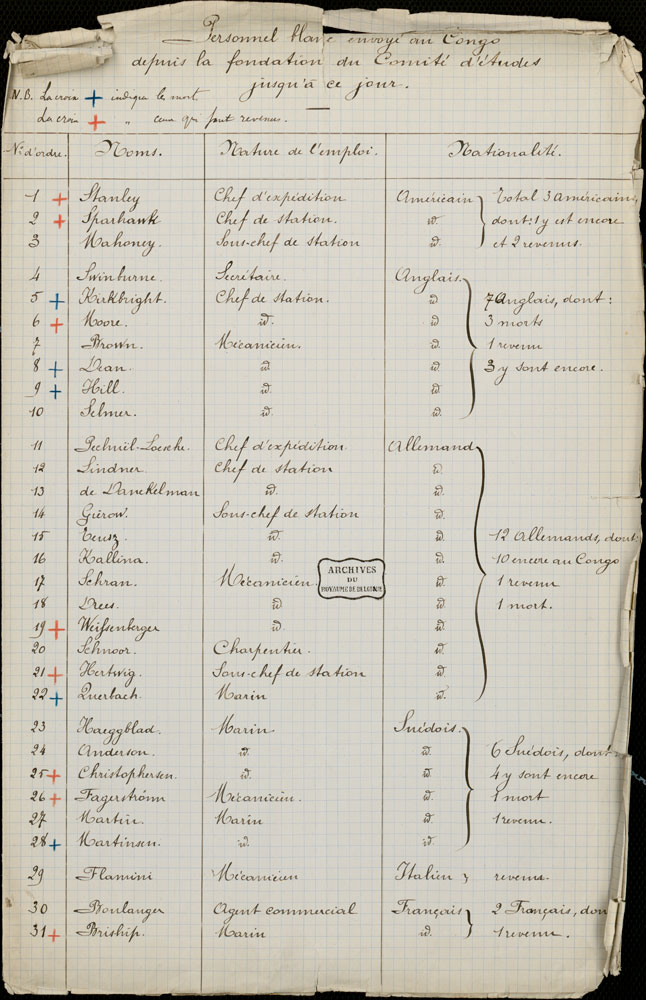 Personnel blanc envoyé au Congo
depuis la fondation du Comité d'études
jusqu'à ce jour.
N.B. La croix + indique les mort
La croix + " ceux qui sont revenus.
N° d'ordre. Noms. Nature de l'emploi. Nationalité.
1 + Stanley Chef d'expédition Américain Total 3 américains,
2 + Sparhawk Chef de station. id. dont: 1 y est encore
3 Mahoney. Sous-chef de station id. et 2 revenus.
4 Swinburne. Secrétaire. Anglais.
5 + Kirkbright. Chef de station. id 7 Anglais, dont:
6 + Moore. id. id 3 morts
7 Brown. Mécanicien. id. 1 revenu
8 + Dean. id id. 3 y sont encore.
9 + Hill. id. id.
10 Selmer. id. id.
11 Pechuël-Loesche. Chef d'expédition. Allemand
12 Lindner. Chef de station id
13 de Danckelman id. id.
14 Gierow. Sous-chef de station id.
15 Teusz. id. id. 12 Allemands, dont:
16 Kallina. id. id. 10 encore au Congo
17 Schran. Mécanicien. id. 1 revenu
18 Drees. id id. 1 mort.
19 + Weissenberger id. id.
20 Schnoor. Charpentier. id.
21 + Hertwig. Sous-chef de station id.
22 + Querbach. Marin id.
23 Haeggblad. Marin Suédois.
24 Anderson. id. id. 6 Suédois, dont
25 + Christophersen. id. id. 4 y sont encore
26 + Fagerström Mécanicien. id. 1 mort
27 Martin. Marin id. 1 revenu.
28 + Martinsen. id. id.
29 Flamini Mécanicien Italien revenu.
30 Boulanger Agent commercial Français 2 Français, don
31 + Briship. Marin id. 1 revenu.
ARCHIVES
DU
ROYAUME DE BELGIQUE